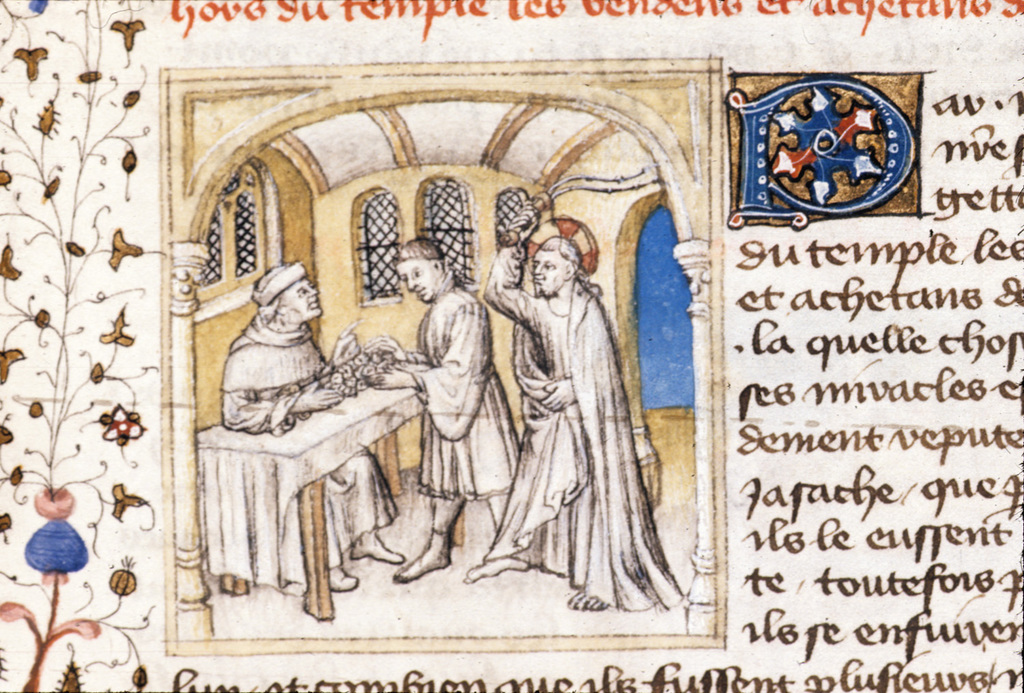 hors du temple les vendens et achetans d
Par. n
nr̄e s
getta
du temple les
et achetans de
. la quelle chos
ses miracles et
dement repute
Ja sache, que p
ils le eussent
te, toutefois p
ils se enfuiren
lui, et combien que ils fussent plusieurs, n